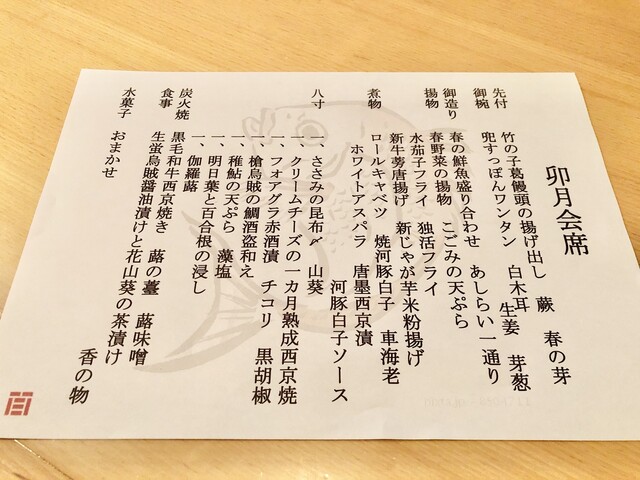 卯月会席
先付 竹の子葛饅頭の揚げ出し 蕨 春の芽
御椀 兜すっぽんワンタン 白木耳 生姜 芽葱
御造り 春の鮮魚盛り合わせ あしらい一通り
揚物 春野菜の揚物 こごみの天ぷら
水茄子フライ 独活フライ
新牛蒡唐揚げ 新じゃが芋米粉揚げ
煮物 ロールキャベツ 焼河豚白子 車海老
ホワイトアスパラ 唐墨西京漬
河豚白子ソース
八寸 一、ささみの昆布〆 山葵
一、クリームチーズの一カ月熟成西京焼
一、フォアグラ赤酒漬 チコリ 黒胡椒
一、槍烏賊の鯛酒盗和え
一、稚鮎の天ぷら 藻塩
一、明日葉と百合根の浸し
一、伽羅蕗
炭火焼 黒毛和牛西京焼き 蕗の薹 蕗味噌
食事 生蛍烏賊醤油漬けと花山葵の茶漬け
香の物
水菓子 おまかせ